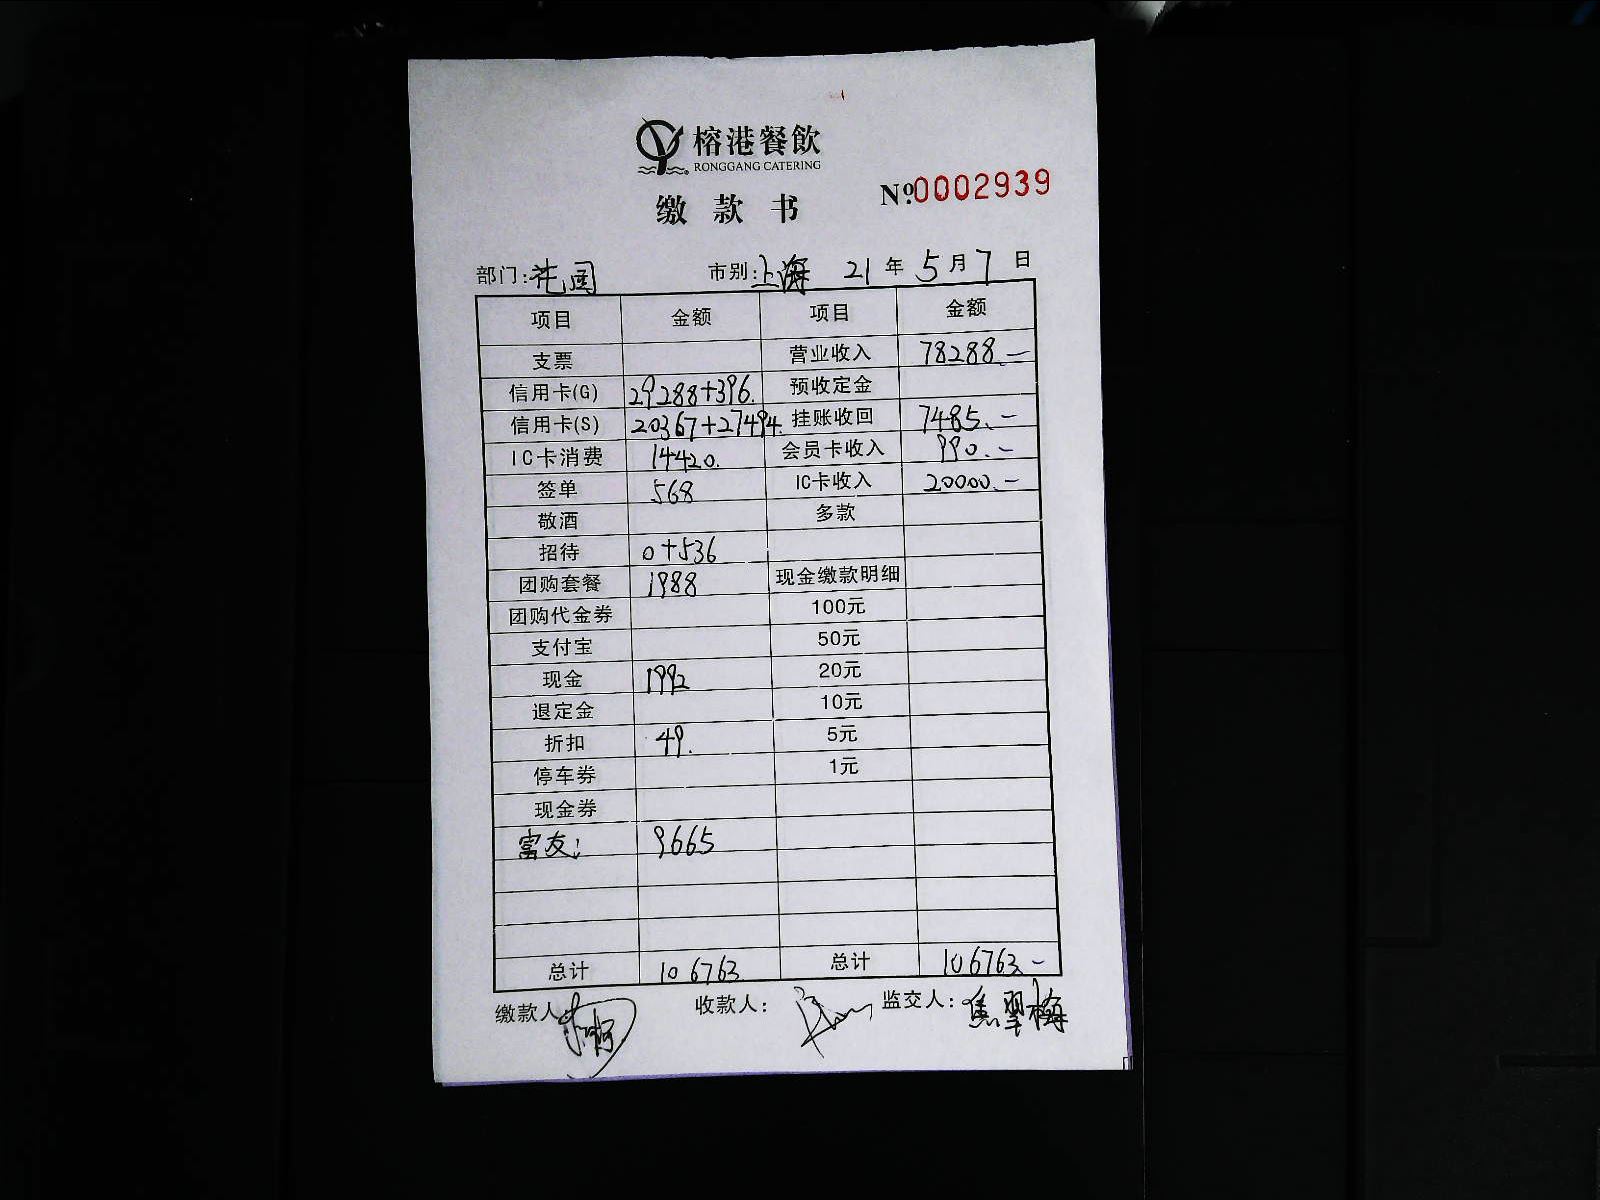 榕港餐飲
RONGGANG CATERING
缴款书
№0002939
部门: 花园 市别: 上海 21年5月7日
项目 金额 项目 金额
支票 营业收入 78288.—
信用卡(G) 29288+396. 预收定金
信用卡(S) 20367+27494. 挂账收回 7485.—
IC卡消费 14420. 会员卡收入 990.—
签单 568 IC卡收入 20000.—
敬酒 多款
招待 0+536
团购套餐 1988 现金缴款明细
团购代金券 100元
支付宝 50元
现金 1992 20元
退定金 10元
折扣 49. 5元
停车券 1元
现金券
富友: 9665
总计 106763 总计 106763.—
缴款人 收款人: 监交人: 焦翠梅